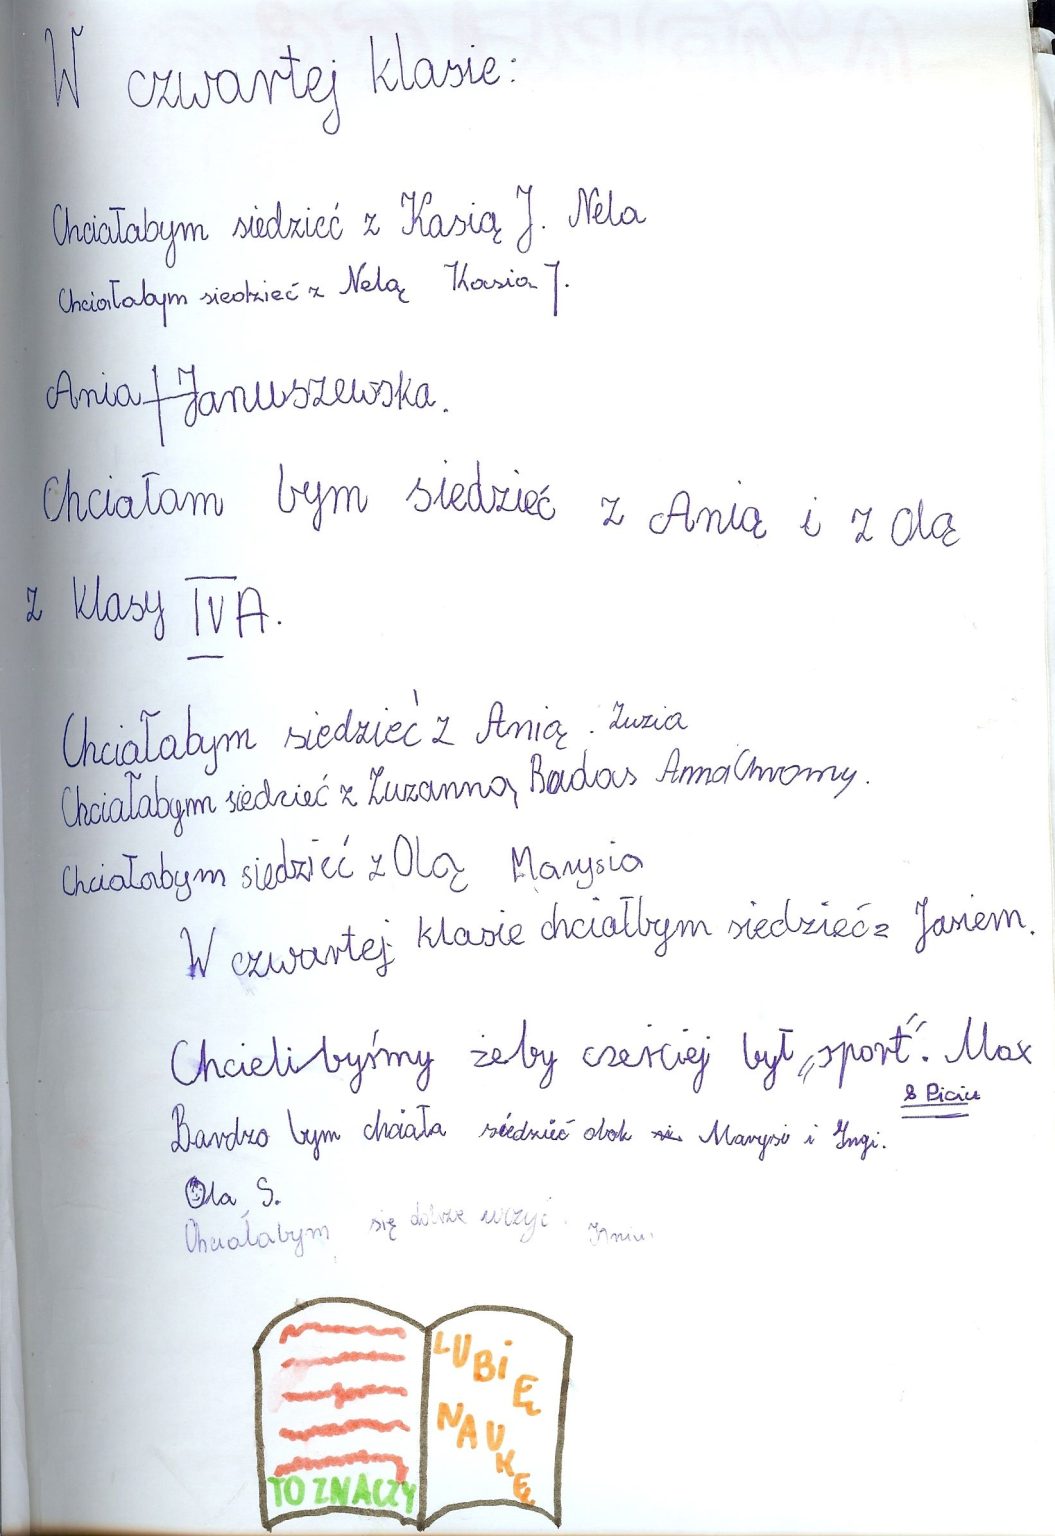 W czwartej klasie:
Chciałabym siedzieć z Kasią J. Nela
Chciałabym siedzieć z Nelą Kasia J.
Ania Januszewska.
Chciałam bym siedzieć z Anią i z Olą
z klasy IVA.
Chciałabym siedzieć z Anią. Zuzia
Chciałabym siedzieć z Zuzanną Badas Anna Chromy.
Chciałabym siedzieć z Olą Marysia
W czwartej klasie chciałbym siedzieć z Jasiem.
Chcielibyśmy żeby cześciej był „sport". Max
& Piciu
Bardzo bym chciała siedzieć obok Marysi i Ingi.
Ola S.
Chciałabym się dobrze uczyć.
LUBIĘ
NAUKĘ
TO ZNACZY